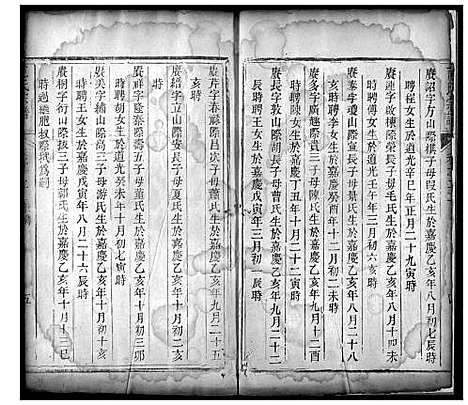 賡詔字方山際積子母段氏生於嘉慶乙亥年八月初七辰時
聘程女生於道光辛巳年正月二十九寅時
賡連字啟穗際榮長子母毛氏生於嘉慶乙亥年八月十四未
時聘傅女生於道光壬午年三月初六亥時
賡泰字瓊山際 子母景氏生於嘉慶乙亥年八月二十午
賡多字廣 際貴三子母陳氏生於嘉慶乙亥年九月十二酉
時聘陳女生於嘉慶丁丑年十月二十二戌時
賡長字 山際 長子母曹氏生於嘉慶乙亥年九月二十二
辰時聘 女生於嘉慶戊寅年三月初一辰時
賡芹字春 際昌次子母蕭氏生於嘉慶乙亥年九月二十五
亥時
賡紹字 山際安長子母夏氏生於嘉慶乙亥年十月初二亥
時
賡祥字隆泰際壽五子母董氏生於嘉慶乙亥年十月初三卯
時聘胡女生於道光癸未年十月初七寅時
賡美字繡山際尚三子母游氏生於嘉慶乙亥年十月初十亥
時聘 女生於嘉慶戊寅年八月二十六辰時
賡樹字衍山際 三子母郭氏生於嘉慶乙亥年十月十三巳
時過繼胞叔際 爲嗣
五